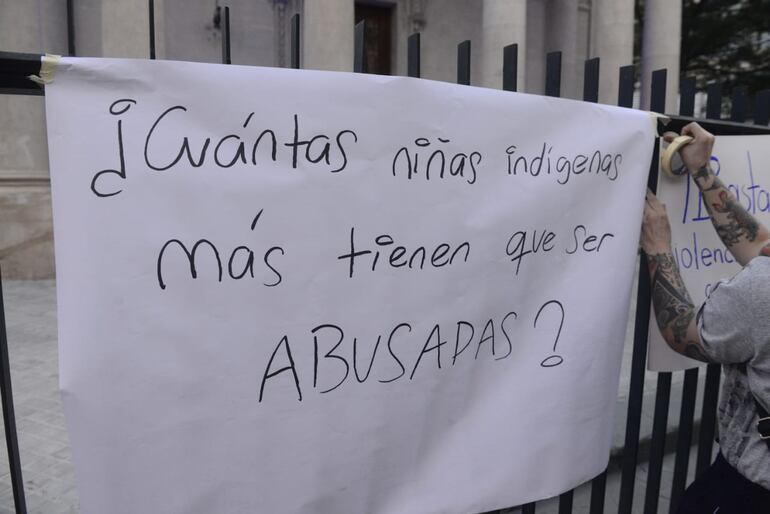 ¿Cuántas niñas indígenas
más tienen que ser
ABUSADAS?
¡Basta